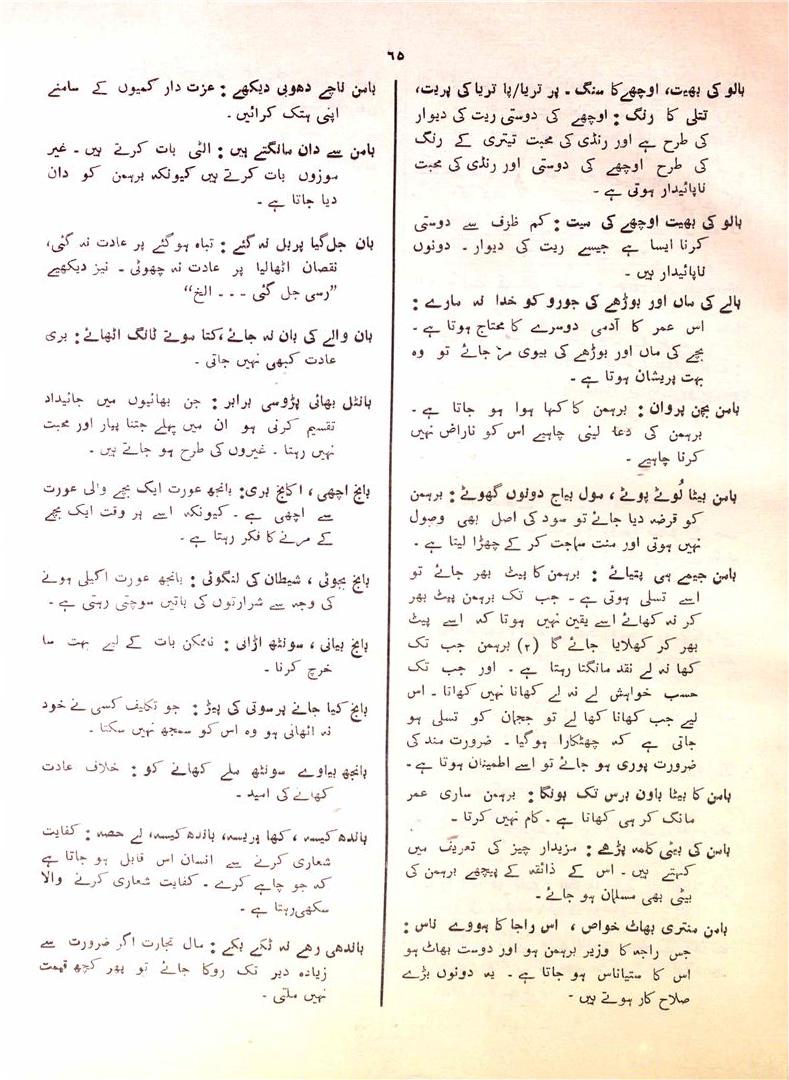 ٦٥
بالو کی بھیت، اوچھے کا سنگ ۔ پر تریا/پا تریا کی پریت،
تتلی کا رنگ : اوچھے کی دوستی ریت کی دیوار
کی طرح ہے اور رنڈی کی محبت تیتری کے رنگ
کی طرح اوچھے کی دوستی اور رنڈی کی محبت
ناپائیدار ہوتی ہے ۔
بالو کی بھیت اوچھے کی میت : کم ظرف سے دوستی
کرنا ایسا ہے جیسے ریت کی دیوار ۔ دونوں
ناپائیدار ہیں ۔
بالے کی ماں اور بوڑھے کی جورو کو خدا نہ مارے :
اس عمر کا آدمی دوسرے کا محتاج ہوتا ہے ۔
بچے کی ماں اور بوڑھے کی بیوی مر جائے تو وہ
بہت پریشان ہوتا ہے ۔
بامن بچن پروان : برہمن کا کہا ہوا ہو جاتا ہے ۔
برہمن کی دعا لینی چاہیے اس کو ناراض نہیں
کرنا چاہیے ۔
بامن بیٹا لُوٹے پوٹے ، مول بیاج دونوں گھوٹے : برہمن
کو قرضہ دیا جائے تو سود کی اصل بھی وصول
نہیں ہوتی اور منت سماجت کر کے چھڑا لیتا ہے ۔
بامن جیمے ہی پتیائے : برہمن کا پیٹ بھر جائے تو
اسے تسلی ہوتی ہے ۔ جب تک برہمن پیٹ بھر
کر نہ کھائے اسے یقین نہیں ہوتا کہ اسے پیٹ
بھر کر کھلایا جائے گا (۲) برہمن جب تک
کھا نہ لے نقد مانگتا رہتا ہے ۔ اور جب تک
حسب خواہش لے نہ لے کھانا نہیں کھاتا ۔ اس
لیے جب کھانا کھا لے تو ججمان کو تسلی ہو
جاتی ہے کہ چھٹکارا ہوگیا ۔ ضرورت مند کی
ضرورت پوری ہو جائے تو اسے اطمینان ہوتا ہے ۔
بامن کا بیٹا باون برس تک بونگا : برہمن ساری عمر
مانگ کر ہی کھاتا ہے ۔ کام نہیں کرتا ۔
بامن کی بیٹی کلمہ پڑھے : مزیدار چیز کی تعریف میں
کہتے ہیں ۔ اس کے ذائقہ کے پیچھے برہمن کی
بیٹی بھی مسلمان ہو جائے ۔
بامن منتری بھاٹ خواص ، اس راجا کا ہووے ناس :
جس راجہ کا وزیر برہمن ہو اور دوست بھاٹ ہو
اس کا ستیاناس ہو جاتا ہے ۔ یہ دونوں بڑے
صلاح کار ہوتے ہیں ۔
بامن ناچے دھوبی دیکھے : عزت دار کمیوں کے سامنے
اپنی ہتک کرائیں ۔
بامن سے دان مانگتے ہیں : الٹی بات کرتے ہیں ۔ غیر
موزوں بات کرتے ہیں کیونکہ برہمن کو دان
دیا جاتا ہے ۔
بان جل گیا پر بل نہ گئے : تباہ ہوگئے پر عادت نہ گئی،
نقصان اٹھالیا پر عادت نہ چھوٹی ۔ نیز دیکھیے
”رسی جل گئی ۔ ۔ ۔ الخ“
بان والے کی بان نہ جائے، کتا موتے ٹانگ اٹھائے : بری
عادت کبھی نہیں جاتی ۔
بانٹل بھائی پڑوسی برابر : جن بھائیوں میں جائیداد
تقسیم کرنی ہو ان میں پہلے جتنا پیار اور محبت
نہیں رہتا ۔ غیروں کی طرح ہو جاتے ہیں ۔
بانج اچھی ، اکانج بری : بانجھ عورت ایک بچے والی عورت
سے اچھی ہے ۔ کیونکہ اسے ہر وقت ایک بچے
کے مرنے کا فکر رہتا ہے ۔
بانج بجوٹی ، شیطان کی لنگوٹی : بانجھ عورت اکیلی ہونے
کی وجہ سے شرارتوں کی باتیں سوچتی رہتی ہے ۔
بانج بیانی ، سونٹھ اڑانی : ناممکن بات کے لیے بہت سا
خرچ کرنا ۔
بانج کیا جانے پرسوتی کی پیڑ : جو تکلیف کسی نے خود
نہ اٹھائی ہو وہ اس کو سمجھ نہیں سکتا ۔
بانجھ بیاوے سونٹھ ملے کھانے کو : خلاف عادت
کھانے کی امید ۔
باندھ کیسہ ، کھا ہریسہ، باندھ کیسہ، لے حصہ : کفایت
شعاری کرنے سے انسان اس قابل ہو جاتا ہے
کہ جو چاہے کرے ۔ کفایت شعاری کرنے والا
سکھی رہتا ہے ۔
باندھی رھے نہ ٹکے بکے : مال تجارت اگر ضرورت سے
زیادہ دیر تک روکا جائے تو پھر کچھ قیمت
نہیں ملتی ۔